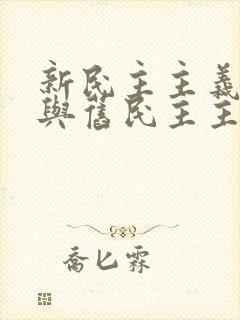 新民主主義
與舊民主主
喬匕霖